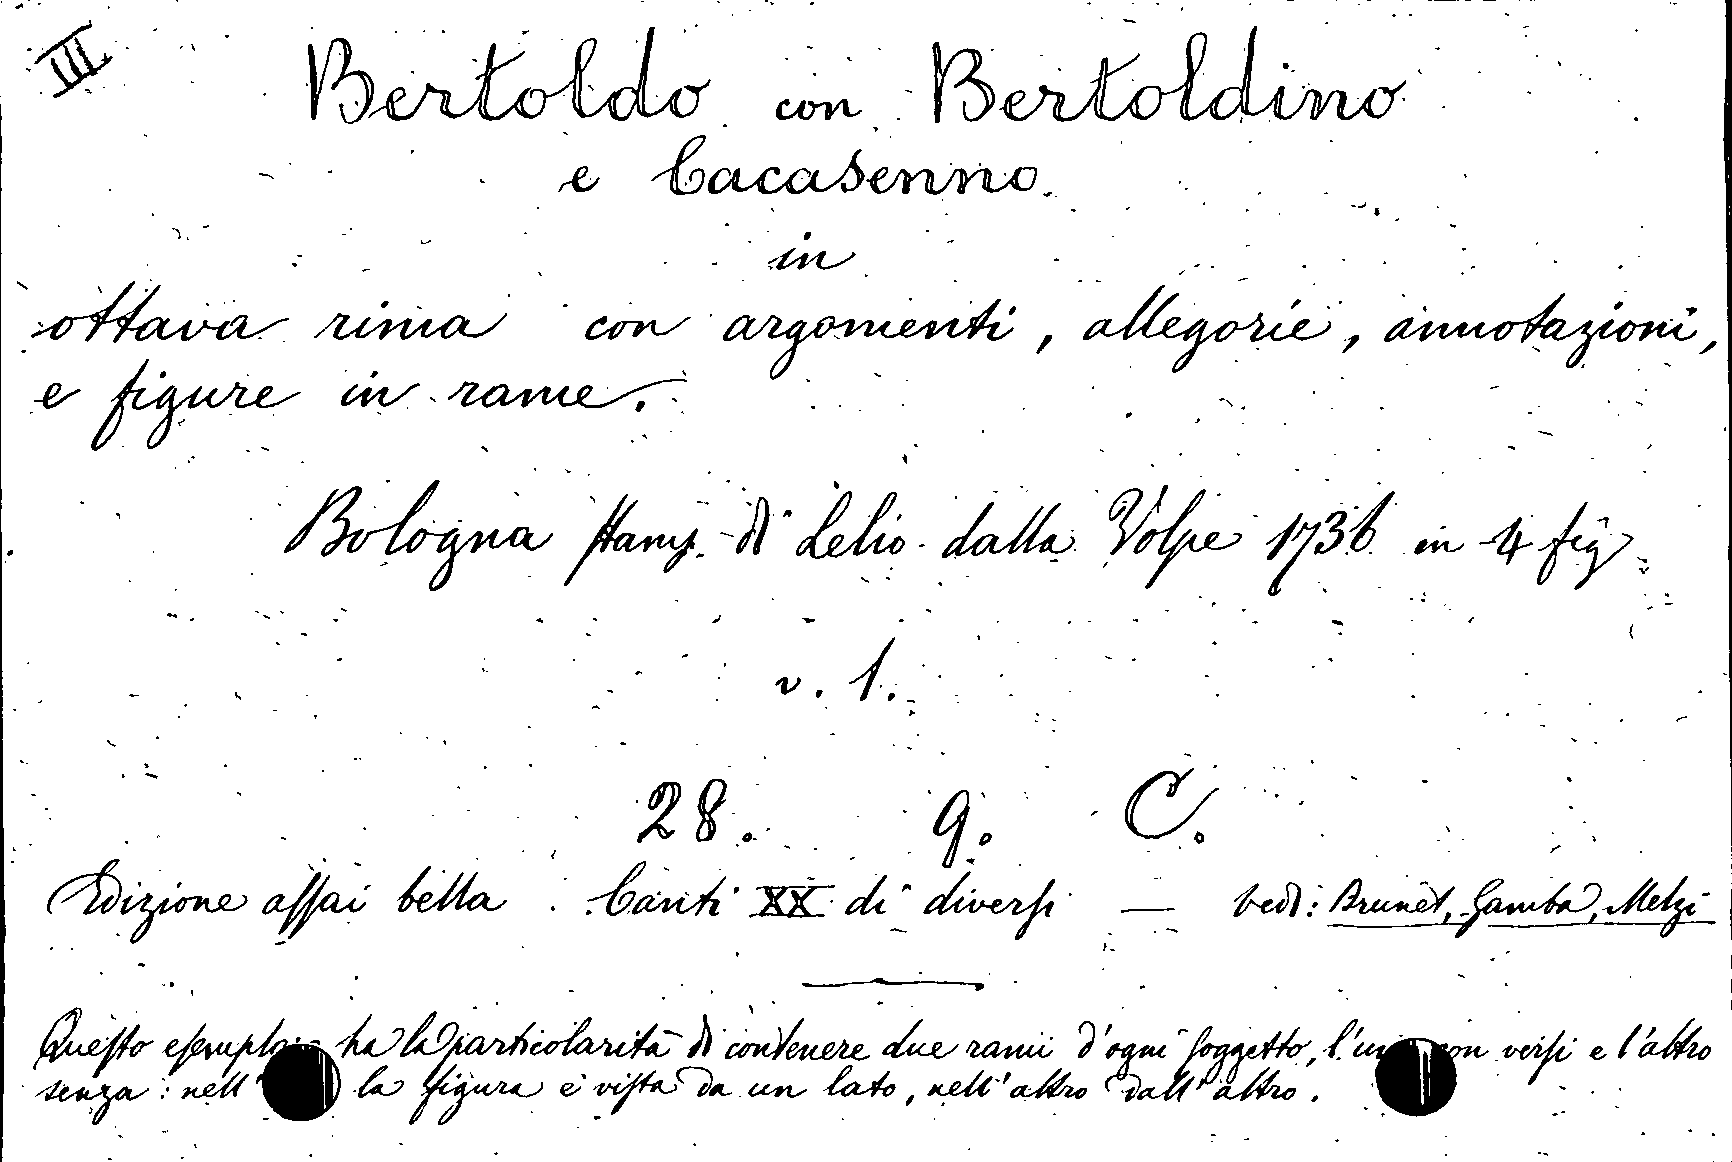 III
Bertoldo con Bertoldino
e Cacasenno
in
ottava rima con argomenti, allegorie, annotazioni,
e figure in rame.
Bologna stamp. di Lelio dalla Volpe 1736 in 4 fig
v. 1.
28. 9. C.
Edizione assai bella. Canti XX di diversi — vedi: Brunet, Gamba, Melzi
Questo esemplare ha la particolarità di contenere due rami d'ogni soggetto, l'uno con versi e l'altro
senza: nell' la figura è vista da un lato, nell'altro dall'altro.